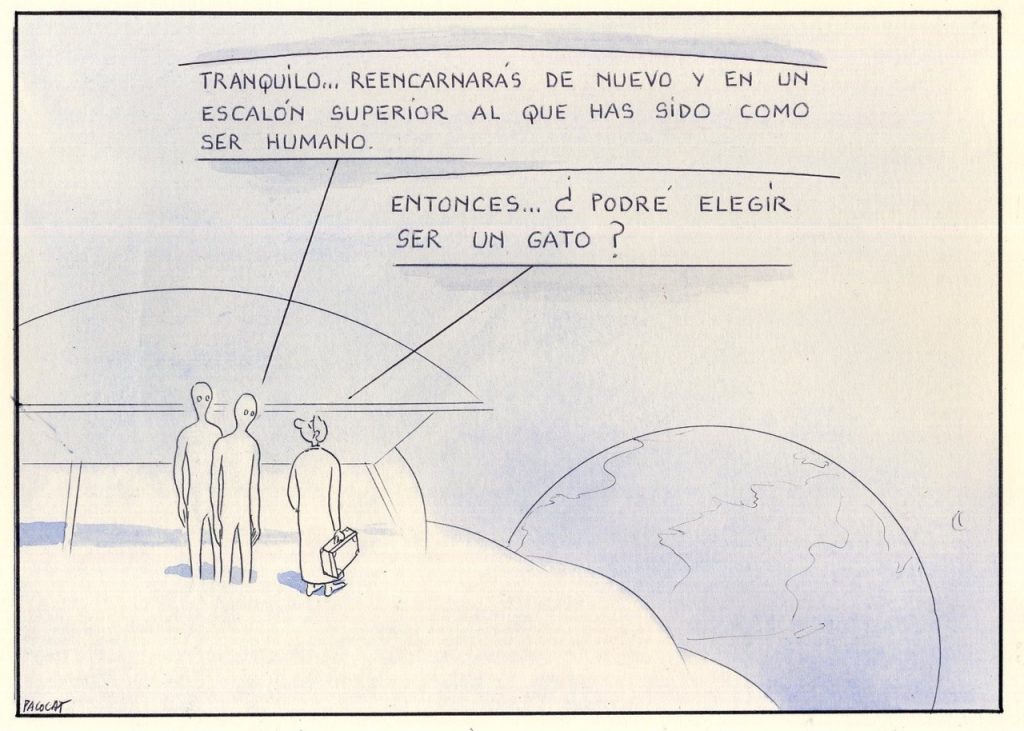 TRANQUILO... REENCARNARÁS DE NUEVO Y EN UN
ESCALÓN SUPERIOR AL QUE HAS SIDO COMO
SER HUMANO.
ENTONCES... ¿ PODRÉ ELEGIR
SER UN GATO ?
PACOCAT